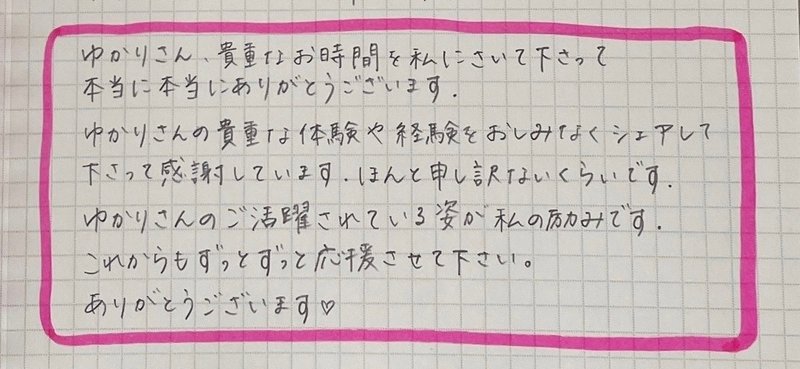 ゆかりさん、貴重なお時間を私にさいて下さって
本当に本当にありがとうございます.
ゆかりさんの貴重な体験や経験をおしみなくシェアして
下さって感謝しています.ほんと申し訳ないくらいです.
ゆかりさんのご活躍されている姿が私の励みです.
これからもずっとずっと応援させて下さい。
ありがとうございます♡